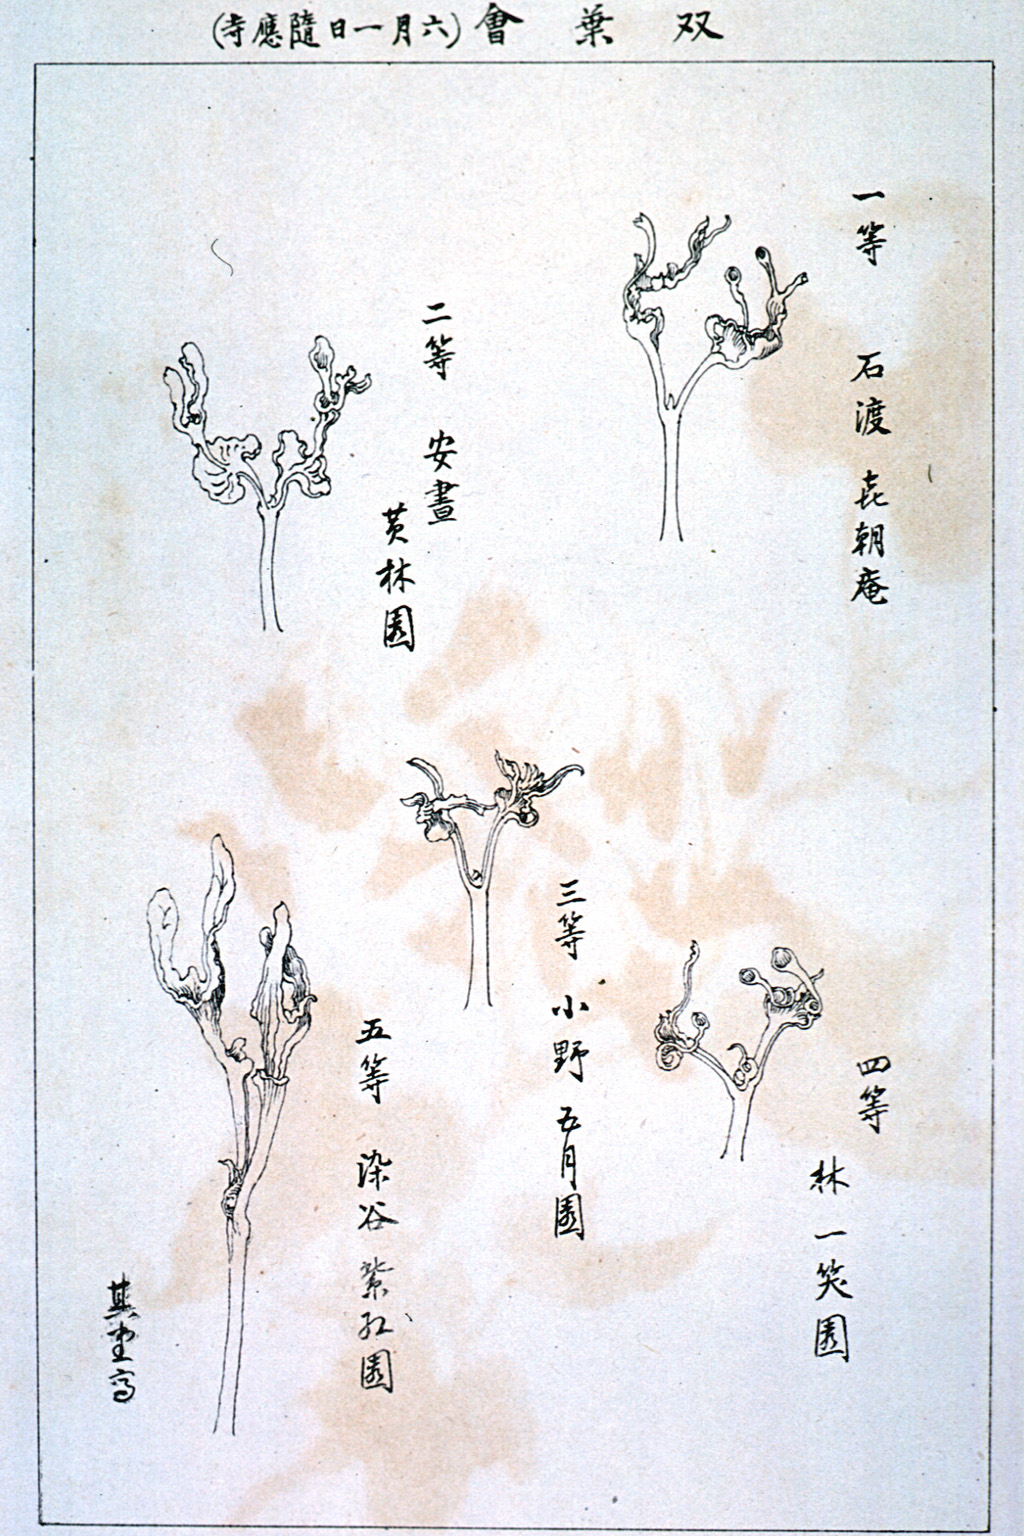 双葉會(六月一日隨應寺)
一等 石渡 㐂朝庵
二等 安晝
黄林園
三等 小野 五月園
四等
林 一笑園
五等 染谷 紫紅園